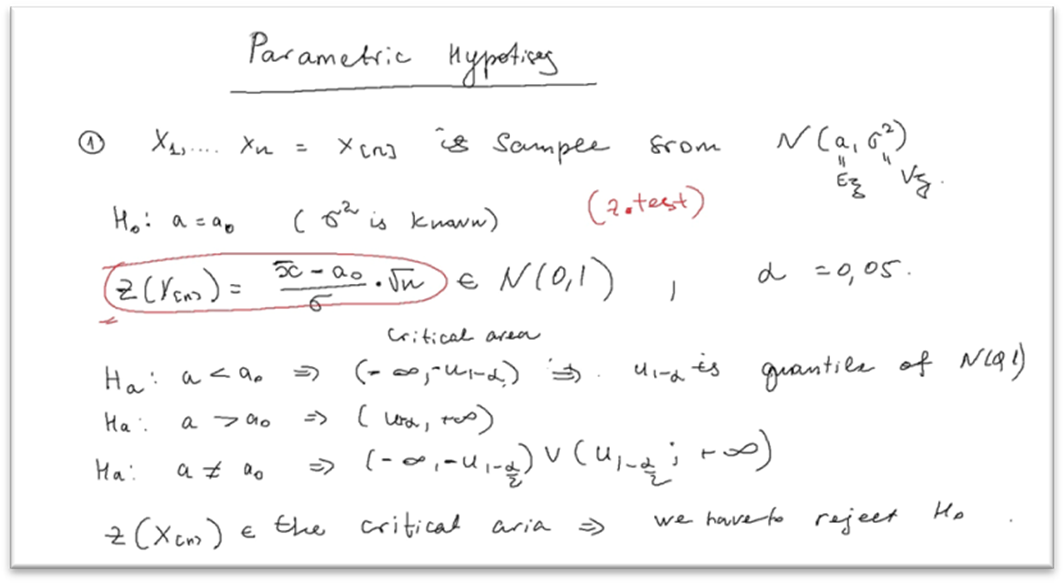 Parametric Hypotises
① X₁, .... Xn = X[n] is Sample from N(a, σ²)
" "
Eξ Vξ.
H₀: a = a₀ (σ² is known) (z.test)
Z(X[n]) = (x̄ - a₀)/σ · √n ∈ N(0,1) , α = 0,05.
Critical area
Ha: a < a₀ ⇒ (-∞, -u₁₋α) ⇒. u₁₋α is quantile of N(0,1)
Ha: a > a₀ ⇒ ( , +∞)
Ha: a ≠ a₀ ⇒ (-∞, -u₁₋α/2) ∨ (u₁₋α/2 ; +∞)
Z(X[n]) ∈ the critical aria ⇒ we have to reject H₀ .